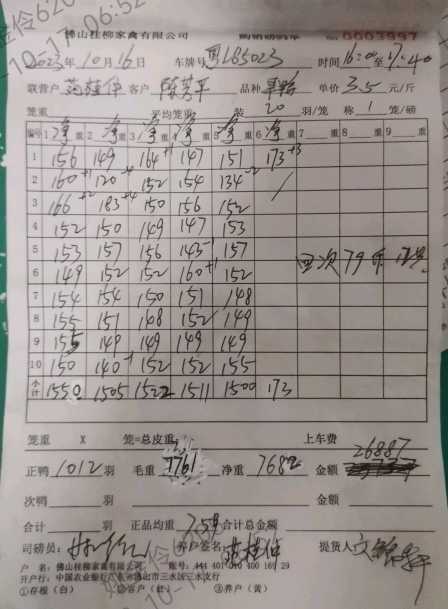 佛山桂柳家禽有限公司 购销结算单 0003997
2023年10月16日 车牌号 LG5023 时间 16:00至17:40
联营户 仲 客户 陈芳平 品种 单价 3.5 元/斤
笼重 平均笼重 装 20 羽/笼 称 1 笼/磅
编号 1净重 2净重 3净重 4净重 5净重 6净重 7重 8重 9重
1 156 149 164+1 147 151 173+3
2 160+1 120-4 152 154 134-2 /
3 166+2 183+4 150 156 152
4 152 150 149 147 153
5 153 157 156 143-1 157 回次79
6 149 152 152 160+1 152
7 154 154 150 151 148
8 155 151 148 152 149
9 155 149 149 149 149
10 150 140-1 152 152 155
小计 1550 1505 1522 1511 1500 173
笼重 X 笼=总皮重 上车费
正鸭 1012 羽 毛重 7761 净重 7682 金额 26887
次鸭 羽 金额
合计 羽 正品均重 7.59 合计总金额
司磅员: 养户签名: 仲 提货人
户 名:佛山桂柳家禽有限公司 账号:444 401 010 400 169 29
开户行:中国农业银行广东省佛山市三水区三水支行
①存根(白) ②客户(红) ③养户(黄)